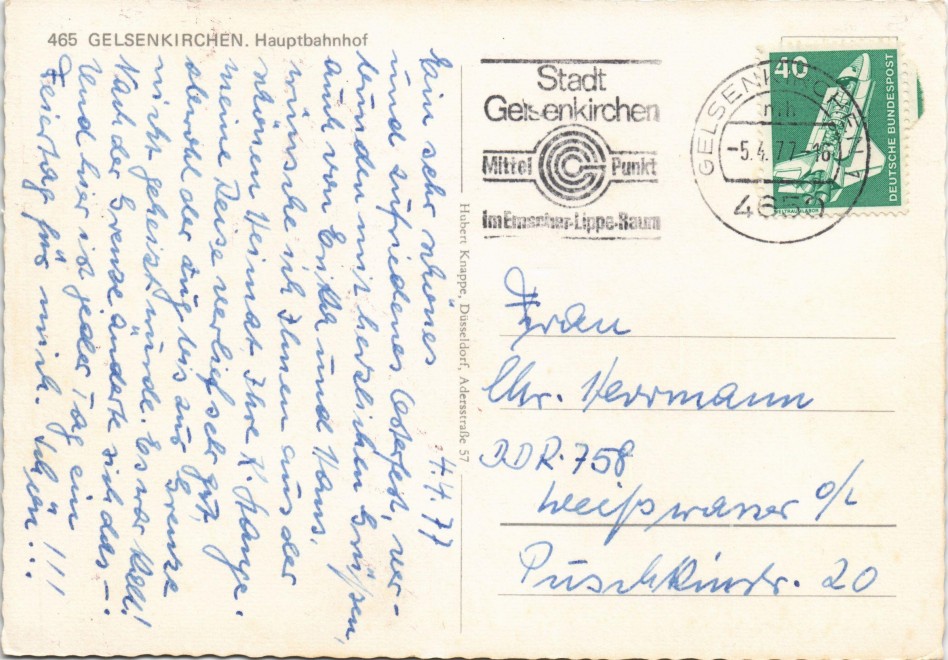 465 GELSENKIRCHEN. Hauptbahnhof
4.4.77
Ein sehr schönes
und zufriedenes Osterfest, ver-
bunden mit herzlichen Grüßen,
auch von Erika und Hans,
wünsche ich Ihnen aus der
schönen Heimat Ihre K. Stange.
Meine Reise verlief sehr gut,
obwohl der Zug bis zur Grenze
nicht geheizt wurde. Es war kalt!
Nach der Grenze änderte sich das –.
Und hier ist jeder Tag ein
Feiertag für mich. Schön !!!
Hubert Knappe, Düsseldorf, Adersstraße 57
Stadt
Gelsenkirchen
Mittel Punkt
im Emscher-Lippe-Raum
GELSENKIRCHEN
-5.4.77-16
4650
40
DEUTSCHE BUNDESPOST
WELTRAUMLABOR
Frau
Chr. Herrmann
DDR. 758
Weißwasser o/L
Puschkinstr. 20